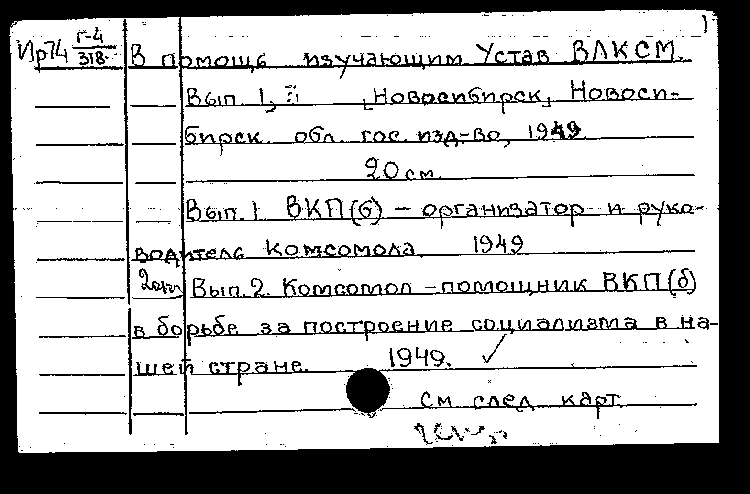 1
Ир74 Г-4/318. В помощь изучающим Устав ВЛКСМ.
Вып. 1, [Новосибирск], Новоси-
бирск. обл. гос. изд-во, 1949
20 см.
Вып. 1. ВКП(б) – организатор и руко-
водитель Комсомола. 1949
2 экз. Вып. 2. Комсомол – помощник ВКП(б)
в борьбе за построение социализма в на-
шей стране. 1949. ✓
см. след. карт.